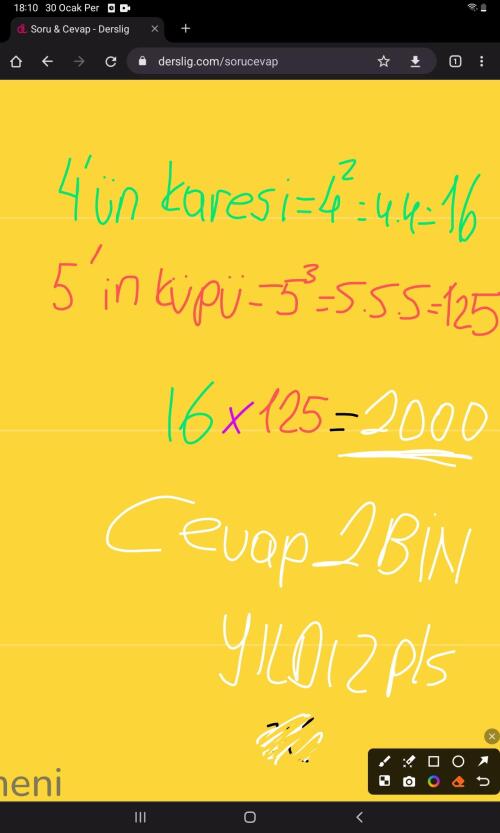 18:10 30 Ocak Per
dL Soru & Cevap - Derslig
derslig.com/sorucevap
1
4'ün karesi=4²=4.4=16
5'in küpü=5³=5.5.5=125
16 x 125 = 2000
Cevap 2BİN
YILDIZ pls
neni